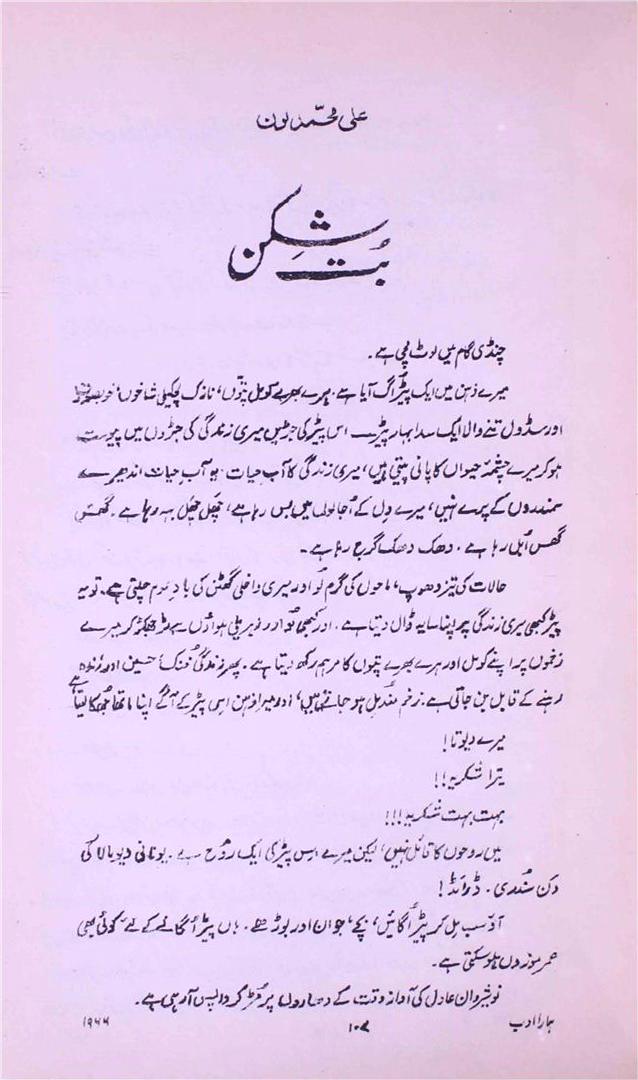 علی محمد لون
بُت شکن
چنڈی گام میں لوٹ مچی ہے۔
میرے ذہن میں ایک پیڑ اُگ آیا ہے۔ ہرے بھرے کومل پتّوں، نازک لچکیلی شاخوں، خوبصورت
اور سڈول تنے والا ایک سدا بہار پیڑ۔ اس پیڑ کی جڑیں میری زندگی کی جڑوں میں پیوست
ہو کر میرے چشمۂ حیواں کا پانی پیتی ہیں، میری زندگی کا آبِ حیات۔ یہ آبِ حیات اندھیرے
سمندروں کے پرے نہیں، میرے دل کے اُجالوں میں بس رہا ہے، چھل چھل بہہ رہا ہے۔ گھس
گھس اُبل رہا ہے۔ دھک دھک گرج رہا ہے۔
حالات کی تیز دھوپ، ماحول کی گرم لُو اور میری داخلی گھٹن کی بادِ سموم چلتی ہے۔ تو یہ
پیڑ کبھی میری زندگی پر اپنا سایہ ڈال دیتا ہے۔ اور کبھی لُو اور زہریلی ہواؤں سے لڑ جھگڑ کر میرے
زخموں پر اپنے کومل اور ہرے بھرے پتوں کا مرہم رکھ دیتا ہے۔ پھر زندگی خنک، حسین اور زندہ
رہنے کے قابل بن جاتی ہے۔ زخم مندمل ہو جاتے ہیں، اور میرا ذہن اسی پیڑ کے آگے اپنا ماتھا جھکا لیتا ہے
میرے دیوتا!
تیرا شکریہ!!
بہت بہت شکریہ!!!
میں روحوں کا قائل نہیں، لیکن میرے اس پیڑ کی ایک رُوح ہے۔ یونانی دیومالا کی
بن سُندری۔ ڈرائڈ!
آؤ سب مل کر پیڑ اُگائیں، بچے، جوان اور بوڑھے۔ ہاں پیڑ اُگانے کے لئے کوئی بھی
عمر موزوں ہو سکتی ہے۔
نوشیروان عادل کی آواز وقت کے دھاروں پر مُڑ کر واپس آ رہی ہے۔
ہمارا ادب
۱۰۷
۱۹۶۶